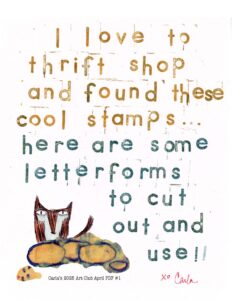 I love to
thrift shop
and found these
cool stamps...
here are some
letterforms
to cut
out and
use!
xo Carla
Carla's 2025 Art Club April PDF #1